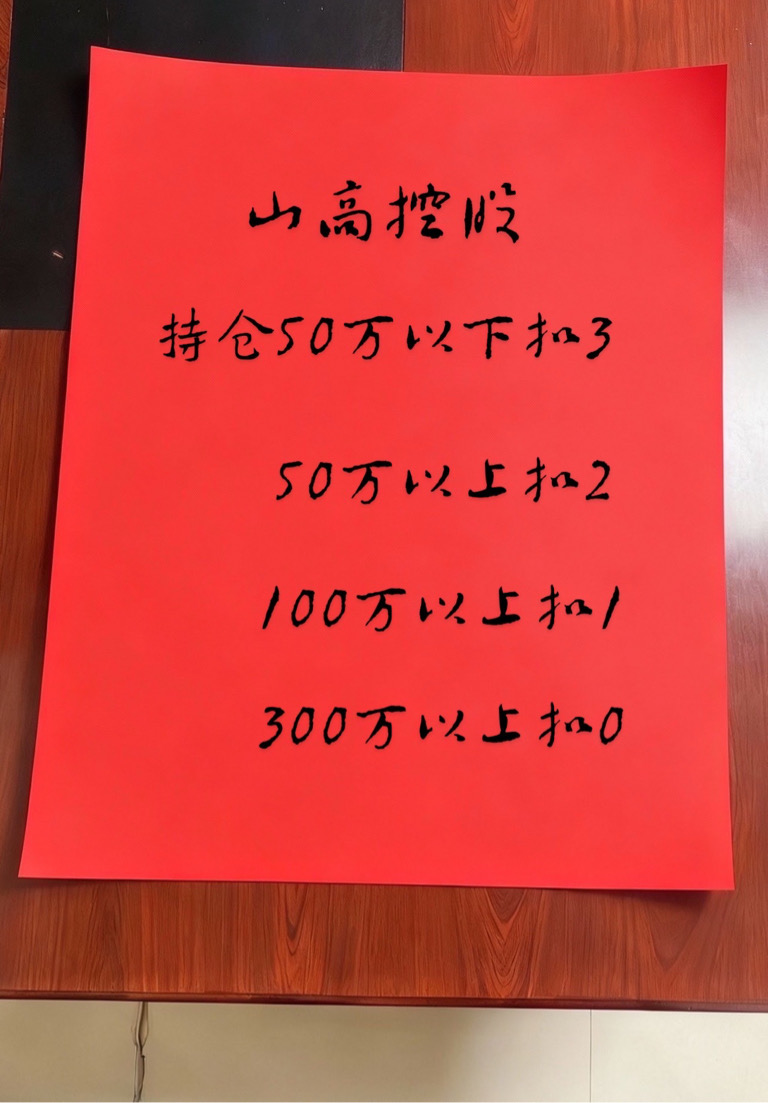 山高控股
持仓50万以下扣3
50万以上扣2
100万以上扣1
300万以上扣0